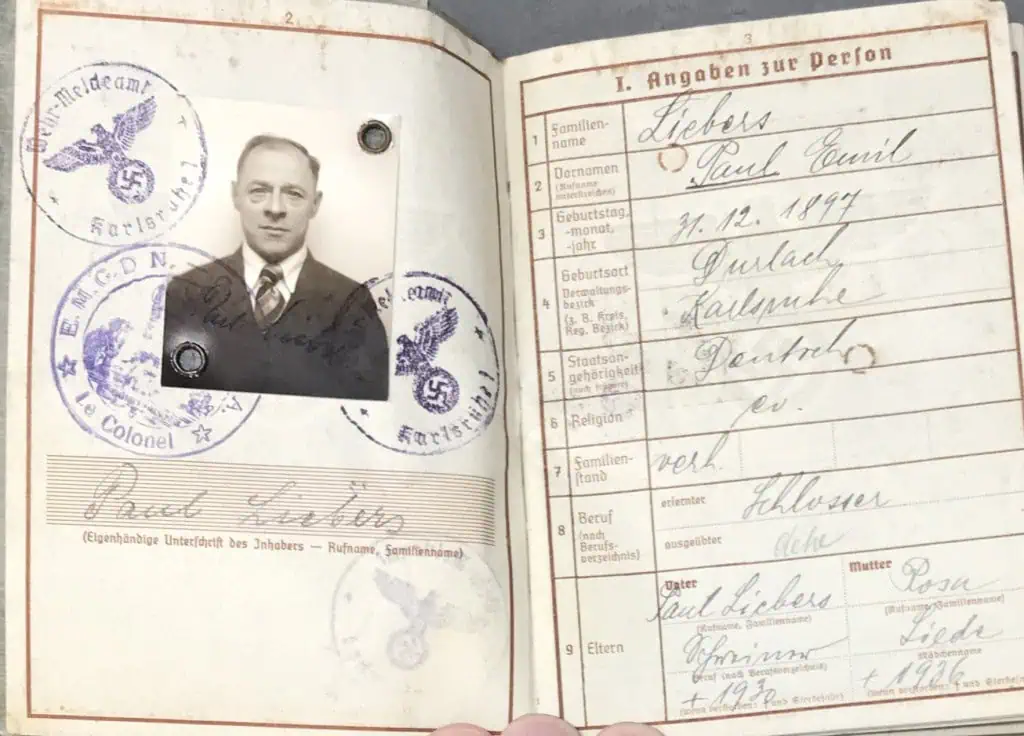 2
Wehr-Meldeamt
Karlsruhe 1
E.M.G.D.N.
A.
Le Colonel
Karlsruhe 1
Paul Liebers
(Eigenhändige Unterschrift des Inhabers — Rufname, Familienname)
3
I. Angaben zur Person
1 Familien-
name
Liebers
2 Vornamen
(Rufname
unterstreichen)
Paul Emil
3 Geburtstag,
-monat,
-jahr
31. 12. 1897
4 Geburtsort
Verwaltungs-
bezirk
(z. B. Kreis,
Reg. Bezirk)
Durlach
Karlsruhe
5 Staatsan-
gehörigkeit
Deutsch
6 Religion
ev.
7 Familien-
stand
verh.
8 Beruf
(nach
Berufs-
verzeichnis)
erlernter
Schlosser
ausgeübter
9 Eltern
Vater
Paul Liebers
(Rufname, Familienname)
Schreiner
Beruf (nach Berufsverzeichnis)
+ 1930
(wenn verstorben: † und Sterbejahr)
Mutter
Rosa
(Rufname, Familienname)
Mädchenname
+ 1936
(wenn verstorben: † und Sterbejahr)